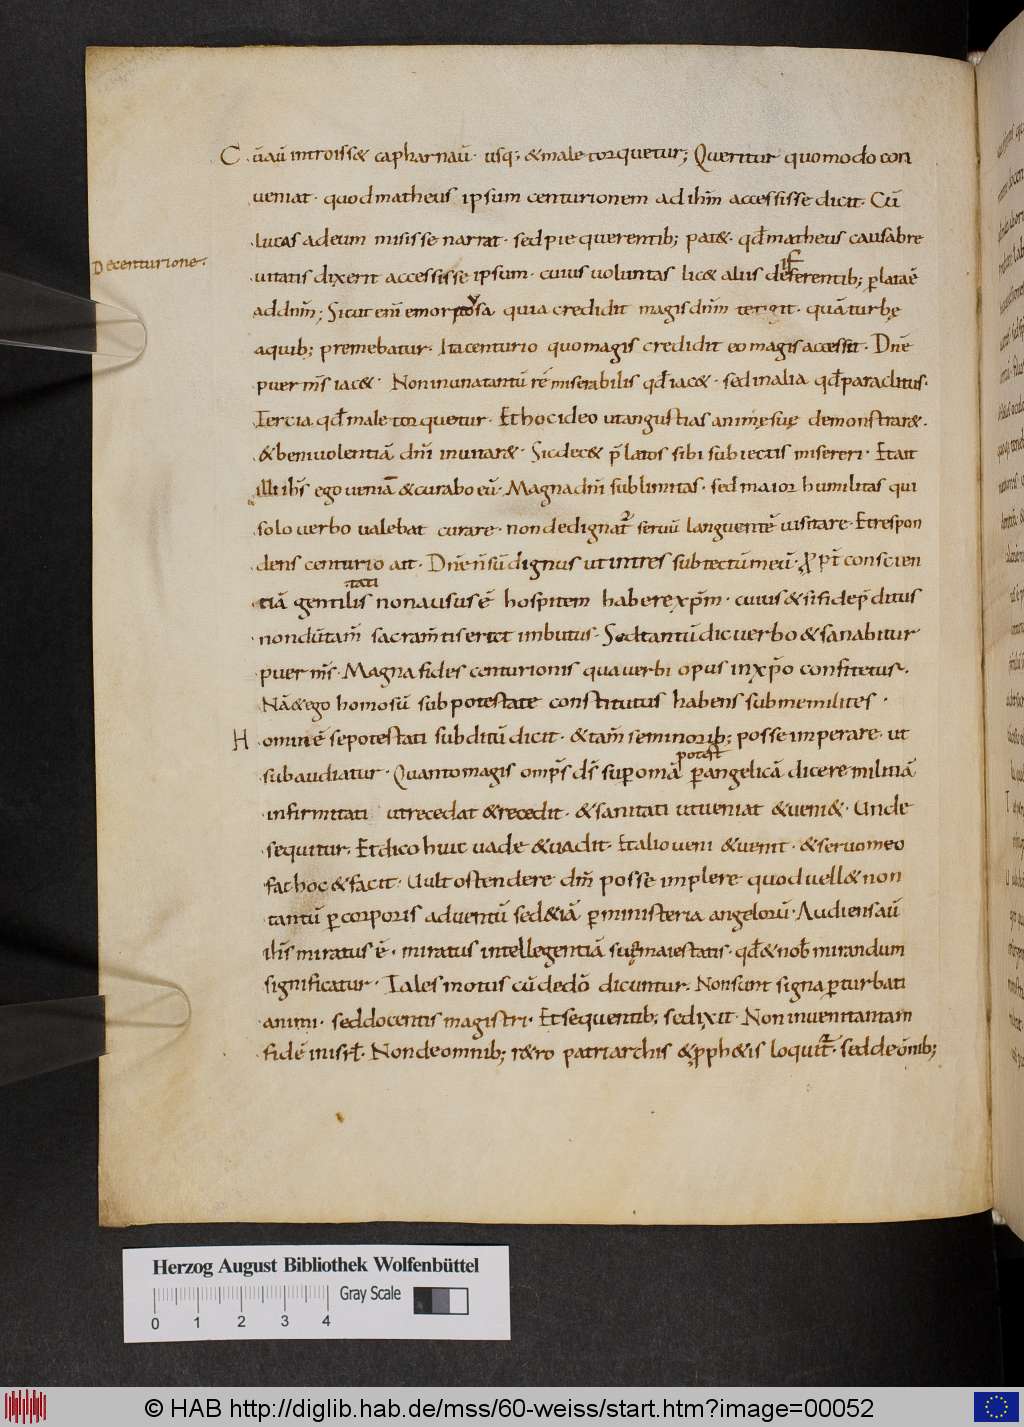 Cū aū introiss& capharnaū· usq;· & male torquetur; Queritur quomodo con
ueniat· quod matheus ipsum centurionem ad ih̄m accessisse dicit· Cū
lucas ad eum misisse narrat· sed pie querentib; pat&· qd̄ matheus causa bre
De centurione·
uitatis dixerit accessisse ipsum· cuius uoluntas lic& aliis deferentib; p̄lata ē
ad dn̄m; Sicut eni emorroysa quia credidit magis dn̄m tetigit· quā turbę
a quib; premebatur· Ita centurio quo magis credidit eo magis accessit· Dn̄e
puer m̄s iac&· Non in una tantū rē miserabilis qd̄ iac&· sed in alia qd̄ paraclitus·
Tercia qd̄ male torquetur· Et hoc ideo ut angustias animę suę demonstrar&·
& beniuolentiā dn̄i inuitar&· Sic dec& p̄latos sibi subiectis misereri· Et ait
illi ih̄s ego ueniā & curabo eū· Magna dn̄i sublimitas· sed maior humilitas qui
solo uerbo ualebat curare· non dedignat̄ seruū languentē uisitare· Et respon
dens centurio ait· Dn̄e n̄ sū dignus ut intres sub tectū meū· ꝓpt̄ conscien
tati
tiā gentilis non ausus ē hospitem habere xp̄m· cuius & si fide p̄ditus
nondū tam̄ sacram̄tis er& imbutus· Sed tantū dic uerbo & sanabitur
puer m̄s· Magna fides centurionis qua uerbi opus in xp̄o confitetur·
Nā & ego homo sū sub potestate constitutus habens sub me milites·
Hominē se potestati subditū dicit· & tam̄ se minorib; posse imperare· ut
potest
subaudiatur· Quanto magis omp̄s d̄s sup̄ omā p̄ angelicā dicere militiā
infirmitati ut recedat & recedit· & sanitati ut ueniat & ueni&· Unde
sequitur· Et dico huic uade & uadit· Et alio ueni & uenit· & seruo meo
fac hoc & facit· Uult ostendere dn̄m posse implere quod uell& non
tantū p̄ corporis aduentū sed & iā p̄ ministeria angelorū· Audiens aū
ih̄s miratus ē· miratus intellegentiā suę maiestatis· qd̄ & nob̄ mirandum
significatur· Tales motus cū de dō dicuntur· Non sunt signa p̄turbati
animi· sed docentis magistri· Et sequentib; se dixit· Non inueni tantam
fidē in isrł· Non de omnib; r&ro patriarchis & p̄ph&is loquit̄· sed de ōnib;
Herzog August Bibliothek Wolfenbüttel
Gray Scale
0 1 2 3 4
© HAB http://diglib.hab.de/mss/60-weiss/start.htm?image=00052